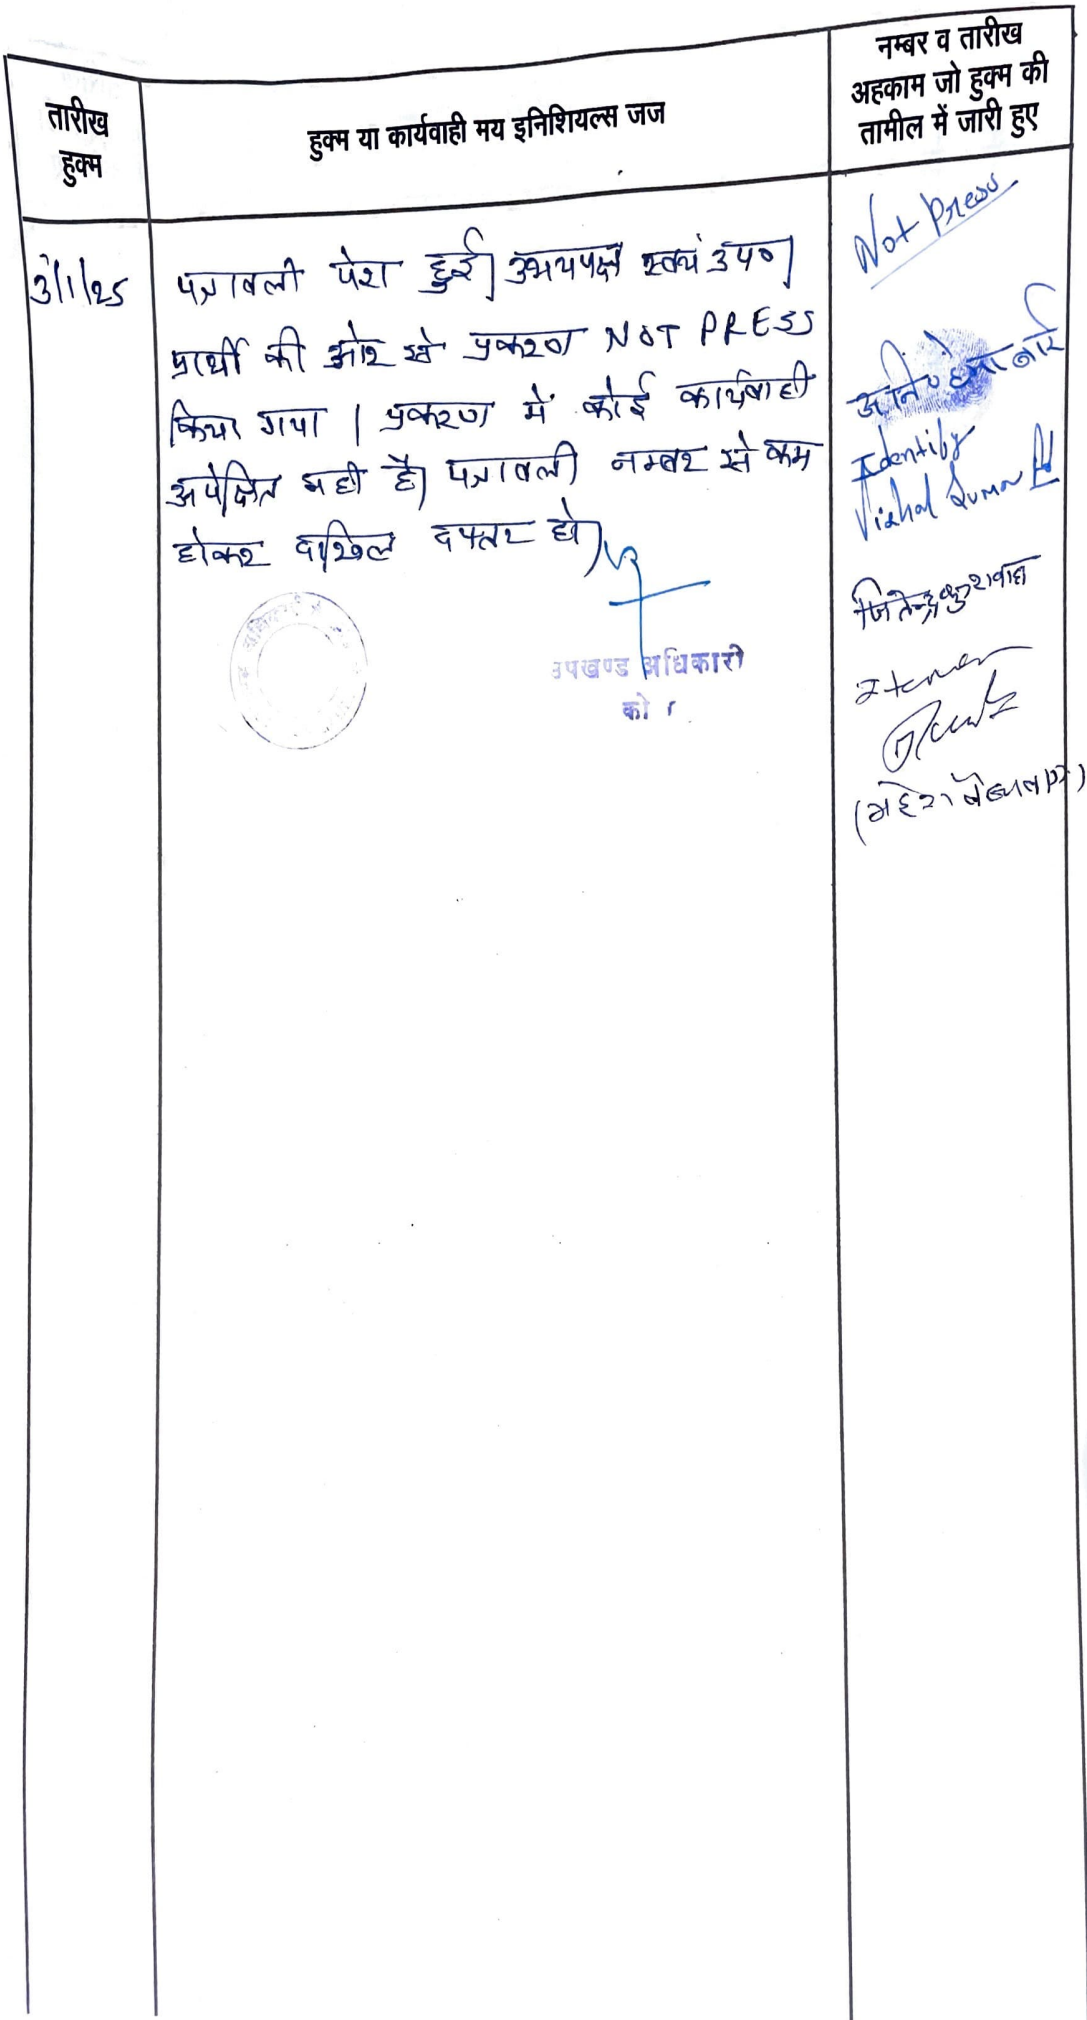 तारीख
हुक्म
हुक्म या कार्यवाही मय इनिशियल्स जज
नम्बर व तारीख
अहकाम जो हुक्म की
तामील में जारी हुए
3/1/25
पत्रावली पेश हुई। उभयपक्ष स्वयं उप०।
प्रार्थी की ओर से प्रकरण NOT PRESS
किया गया । प्रकरण में कोई कार्यवाही
अपेक्षित नही है। पत्रावली नम्बर से कम
होकर दाखिल दफ्तर हो।
उपखण्ड अधिकारी
Not Press
Identify
Vishal Suman
जितेन्द्र कुशवाह